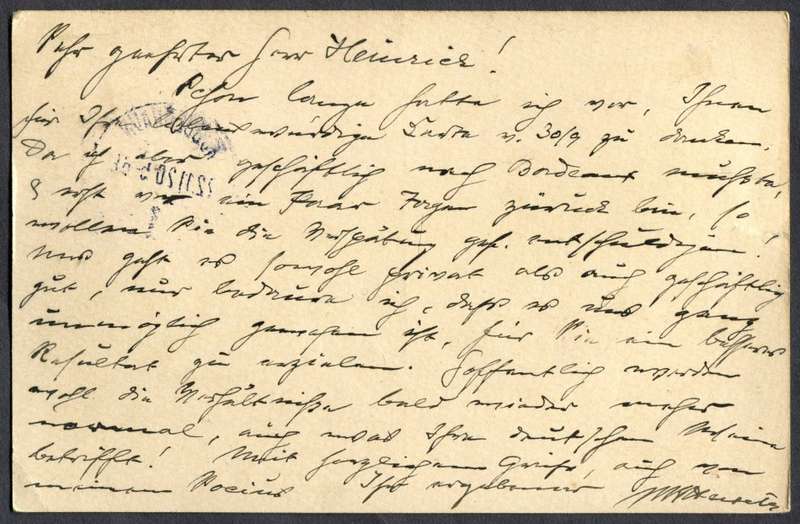 Sehr geehrter Herr Heinrich!
Schon lange hatte ich vor, Ihnen
für Ihre liebenswürdige Carte v. 30/9 zu danken.
Da ich aber geschäftlich nach Bordeaux musste,
& erst vor ein Paar Tagen zurück bin, so
wollen Sie die Verspätung gef. entschuldigen!
Uns geht es sowohl privat als auch geschäftlich
gut, nur bedaure ich, dass es uns ganz
unmöglich gewesen ist, für Sie ein besseres
Resultat zu erzielen. Hoffentlich werden
wohl die Verhältnisse bald wieder mehr
normal, auch was Ihre deutschen Weine
betrifft! Mit herzlichem Gruss, auch von
meinem Socius Ihr ergebener